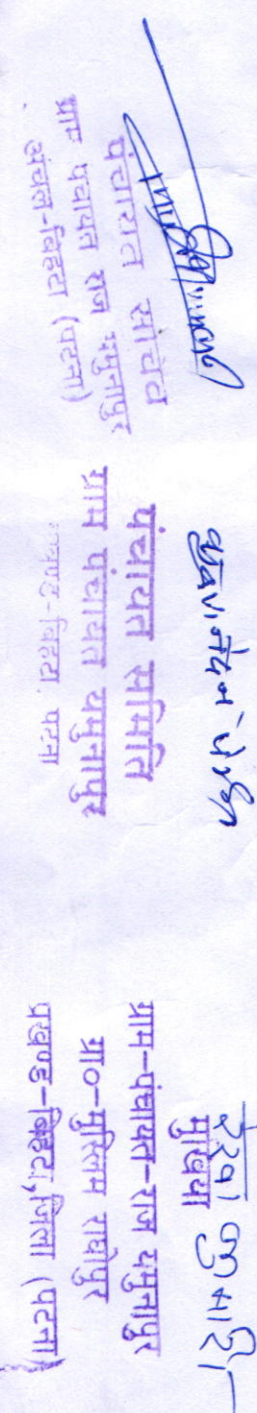 पंचायत सचिव
ग्राम पंचायत राज यमुनापुर
अंचल-बिहटा (पटना)
पंचायत समिति
ग्राम पंचायत यमुनापुर
प्रखण्ड-बिहटा, पटना
रेखा कुमारी
मुखिया
ग्राम-पंचायत-राज यमुनापुर
ग्रा०-मुस्लिम राघोपुर
प्रखण्ड-बिहटा, जिला (पटना)